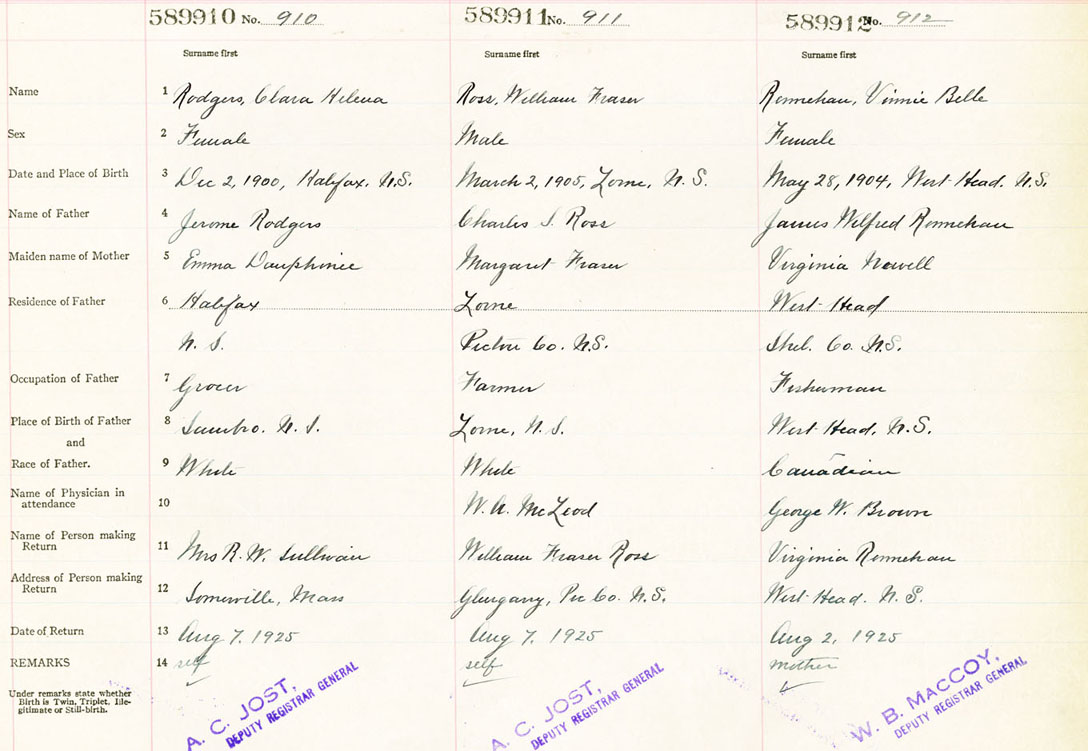 589910 No. 910 589911 No. 911 589912 No. 912
Surname first Surname first Surname first
Name 1 Rodgers, Clara Helena Ross, William Fraser Rennehan, Vinnie Belle
Sex 2 Female Male Female
Date and Place of Birth 3 Dec 2, 1900, Halifax, N.S. March 2, 1905, Lorne, N.S. May 28, 1904, West Head. N.S.
Name of Father 4 Jerome Rodgers Charles S. Ross James Wilfred Rennehan
Maiden name of Mother 5 Emma Dauphinee Margaret Fraser Virginia Newell
Residence of Father 6 Halifax Lorne West Head
N. S. Pictou Co. N.S. Shel. Co. N.S.
Occupation of Father 7 Grocer Farmer Fisherman
Place of Birth of Father 8 Sambro. N. S. Lorne, N. S. West Head, N.S.
and
Race of Father. 9 White White Canadian
Name of Physician in attendance 10 W. A. McLeod George W. Brown
Name of Person making Return 11 Mrs R. W. Sullivan William Fraser Ross Virginia Rennehan
Address of Person making Return 12 Somerville, Mass Glengarry, Pic Co. N.S. West Head. N. S.
Date of Return 13 Aug 7. 1925 Aug 7. 1925 Aug 2, 1925
REMARKS 14 self self mother
Under remarks state whether
Birth is Twin, Triplet, Ille-
gitimate or Still-birth.
A. C. JOST, A. C. JOST, W. B. MACCOY,
DEPUTY REGISTRAR GENERAL DEPUTY REGISTRAR GENERAL DEPUTY REGISTRAR GENERAL